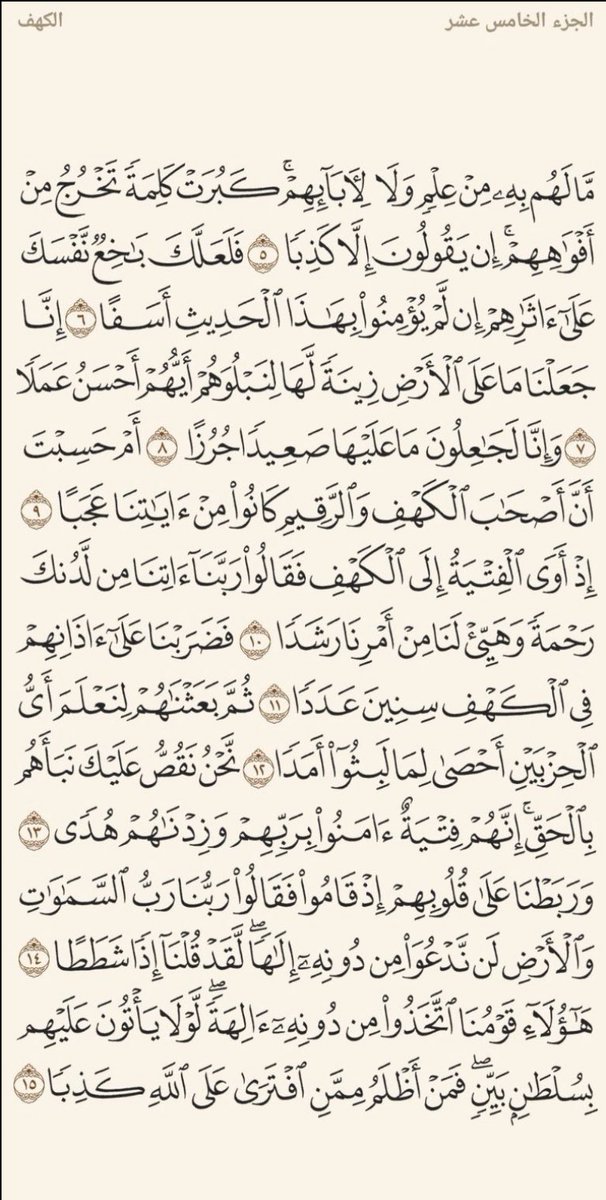 الجزء الخامس عشر
الكهف
مَّا لَهُم بِهِۦ مِنْ عِلْمٍ وَلَا لِأٓبَآئِهِمْ ۚ كَبُرَتْ كَلِمَةً تَخْرُجُ مِنْ
أَفْوَٰهِهِمْ ۚ إِن يَقُولُونَ إِلَّا كَذِبًا ٥ فَلَعَلَّكَ بَـٰخِعٌ نَّفْسَكَ
عَلَىٰٓ ءَاثَـٰرِهِمْ إِن لَّمْ يُؤْمِنُوا۟ بِهَـٰذَا ٱلْحَدِيثِ أَسَفًا ٦ إِنَّا
جَعَلْنَا مَا عَلَى ٱلْأَرْضِ زِينَةً لَّهَا لِنَبْلُوَهُمْ أَيُّهُمْ أَحْسَنُ عَمَلًا
٧ وَإِنَّا لَجَـٰعِلُونَ مَا عَلَيْهَا صَعِيدًا جُرُزًا ٨ أَمْ حَسِبْتَ
أَنَّ أَصْحَـٰبَ ٱلْكَهْفِ وَٱلرَّقِيمِ كَانُوا۟ مِنْ ءَايَـٰتِنَا عَجَبًا ٩
إِذْ أَوَى ٱلْفِتْيَةُ إِلَى ٱلْكَهْفِ فَقَالُوا۟ رَبَّنَآ ءَاتِنَا مِن لَّدُنكَ
رَحْمَةً وَهَيِّئْ لَنَا مِنْ أَمْرِنَا رَشَدًا ١٠ فَضَرَبْنَا عَلَىٰٓ ءَاذَانِهِمْ
فِى ٱلْكَهْفِ سِنِينَ عَدَدًا ١١ ثُمَّ بَعَثْنَـٰهُمْ لِنَعْلَمَ أَىُّ
ٱلْحِزْبَيْنِ أَحْصَىٰ لِمَا لَبِثُوٓا۟ أَمَدًا ١٢ نَّحْنُ نَقُصُّ عَلَيْكَ نَبَأَهُم
بِٱلْحَقِّ ۚ إِنَّهُمْ فِتْيَةٌ ءَامَنُوا۟ بِرَبِّهِمْ وَزِدْنَـٰهُمْ هُدًى ١٣
وَرَبَطْنَا عَلَىٰ قُلُوبِهِمْ إِذْ قَامُوا۟ فَقَالُوا۟ رَبُّنَا رَبُّ ٱلسَّمَـٰوَٰتِ
وَٱلْأَرْضِ لَن نَّدْعُوَا۟ مِن دُونِهِۦٓ إِلَـٰهًا ۖ لَّقَدْ قُلْنَآ إِذًا شَطَطًا ١٤
هَـٰٓؤُلَآءِ قَوْمُنَا ٱتَّخَذُوا۟ مِن دُونِهِۦٓ ءَالِهَةً ۖ لَّوْلَا يَأْتُونَ عَلَيْهِم
بِسُلْطَـٰنٍۭ بَيِّنٍ ۖ فَمَنْ أَظْلَمُ مِمَّنِ ٱفْتَرَىٰ عَلَى ٱللَّهِ كَذِبًا ١٥